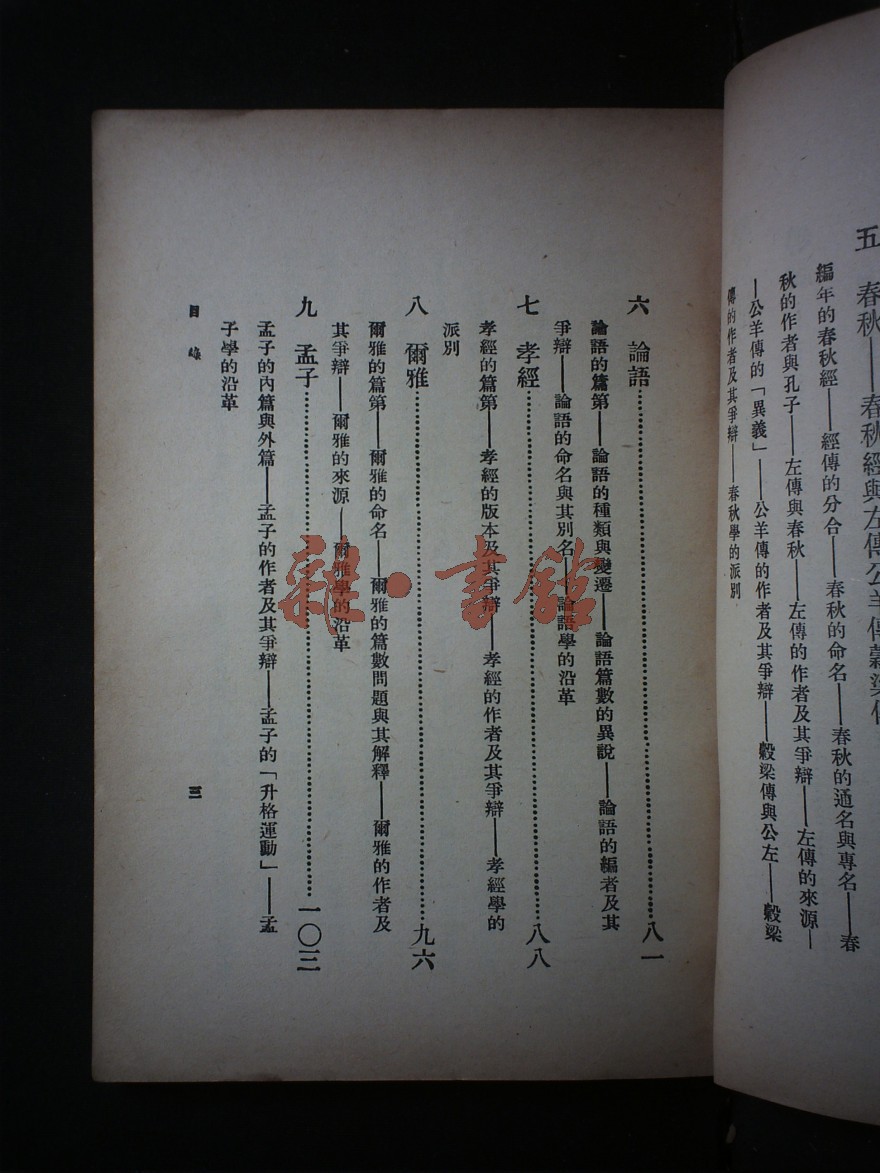 五　春秋——春秋經與左傳公羊傳穀梁傳
編年的春秋經——經傳的分合——春秋的命名——春秋的通名與專名——春
秋的作者與孔子——左傳與春秋——左傳的作者及其爭辯——左傳的來源—
—公羊傳的「異義」——公羊傳的作者及其爭辯——穀梁傳與公左——穀梁
傳的作者及其爭辯——春秋學的派別
六　論語……八一
論語的篇第——論語的種類與變遷——論語篇數的異說——論語的編者及其
爭辯——論語的命名與其別名——論語學的沿革
七　孝經……八八
孝經的篇第——孝經的版本及其爭辯——孝經的作者及其爭辯——孝經學的
派別
八　爾雅……九六
爾雅的篇第——爾雅的命名——爾雅的篇數問題與其解釋——爾雅的作者及
其爭辯——爾雅的來源——爾雅學的沿革
九　孟子……一〇三
孟子的內篇與外篇——孟子的作者及其爭辯——孟子的「升格運動」——孟
子學的沿革
目錄
三
雜·書館